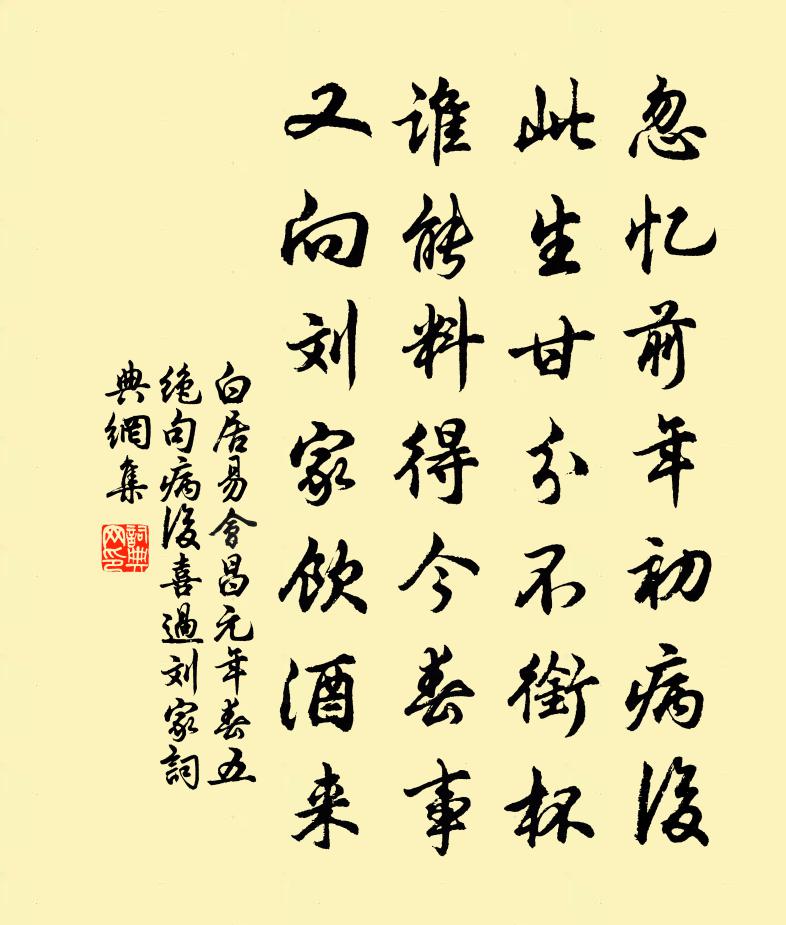 忽忆前年初病後
此生甘分不銜杯
谁能料得今春事
又向刘家饮酒来
白居易會昌元年春五
绝句病後喜過刘家詞
典網集
詞典
网印